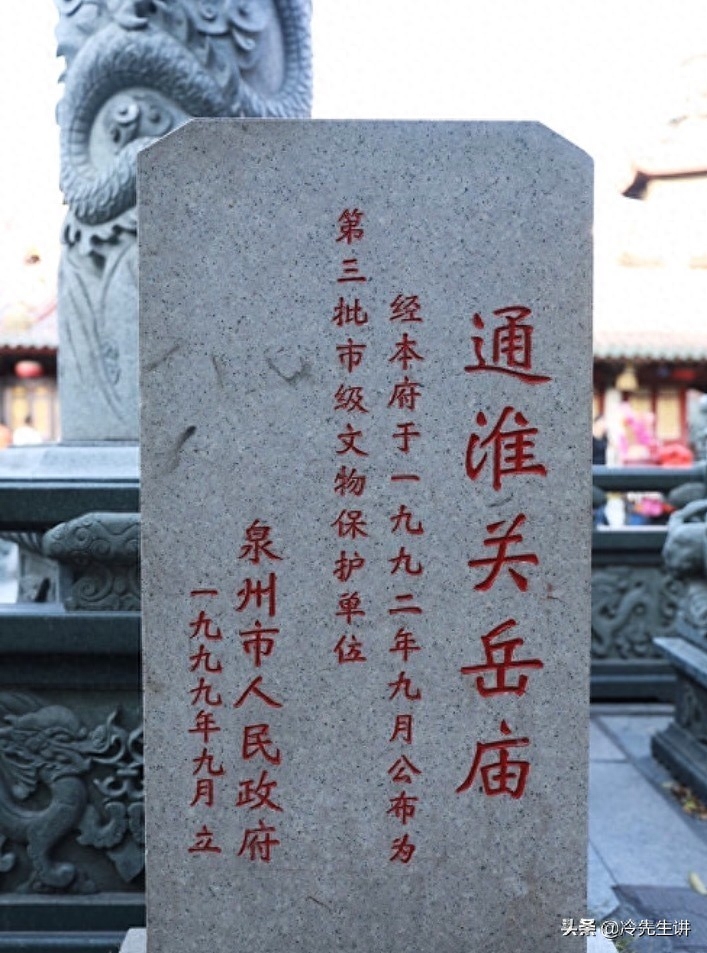 通淮关岳庙
经本府于一九九二年九月公布为
第三批市级文物保护单位
泉州市人民政府
一九九九年九月立
头条 @冷先生讲